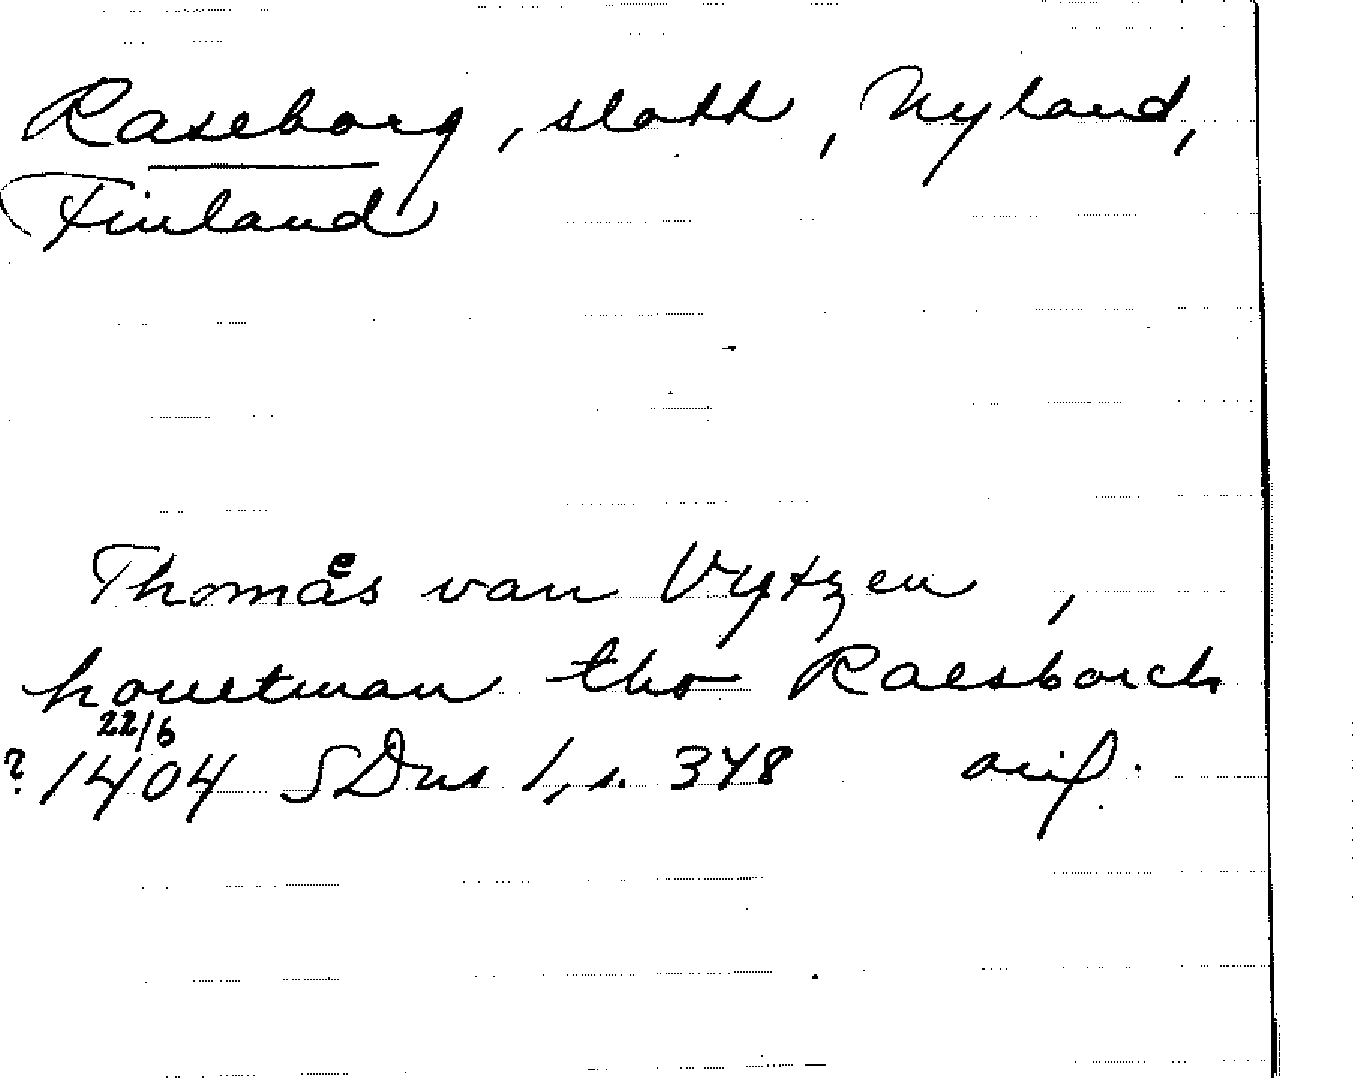 Raseborg, slott, Nyland,
Finland
Thomaͤs van Vytzen,
houetman tho Raesborch
22/6
? 1404 SDns 1, s. 348 avis.